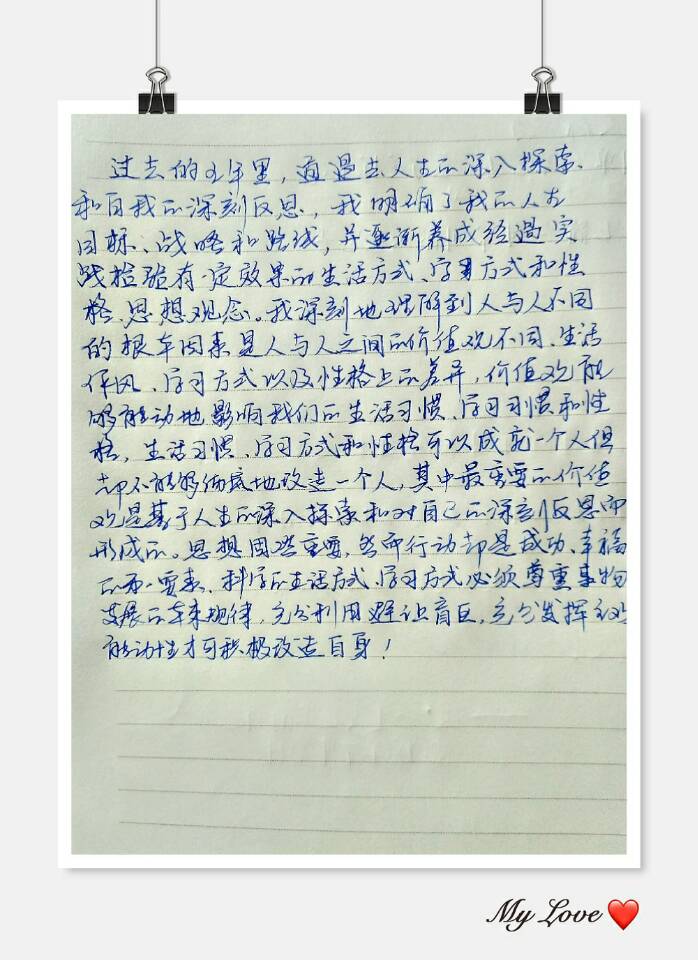 过去的五年里，通过去人生的深入探索、
和自我的深刻反思，我明确了我的人生
目标、战略和路线，并逐渐养成经过实
战检验有一定效果的生活方式、学习方式和性
格、思想观念。我深刻地理解到人与人不同
的根本因素是人与人之间的价值观不同、生活
作风、学习方式以及性格上的差异，价值观能
够能动地影响我们的生活习惯、学习习惯和性
格，生活习惯、学习方式和性格可以成就一个人但
却不能够彻底地改造一个人，其中最重要的价值
观是基于人生的深入探索和对自己的深刻反思而
形成的。思想固然重要，然而行动却是成功、幸福
的第一要素、科学的生活方式、学习方式必须尊重事物
发展的本来规律，充分利用 盲区，充分发挥主观
能动性才可积极改造自身！
My Love